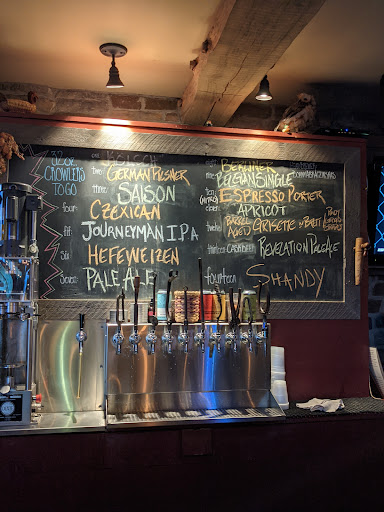 32oz
CROWLERS
TO GO
one KOLSCH
two GERMAN PILSNER
three SAISON
four CZEXICAN
five JOURNEYMAN I.P.A
Six HEFEWEIZEN
Seven PALE ALE
BERLINER
BELGIAN SINGLE
ten ESPRESSO PORTER
(nitro)
eleven APRICOT
twelve BARREL AGED GRISETTE w/ BRETT
thirteen CASK BEER REVELATION PALE ALE
fourteen SHANDY